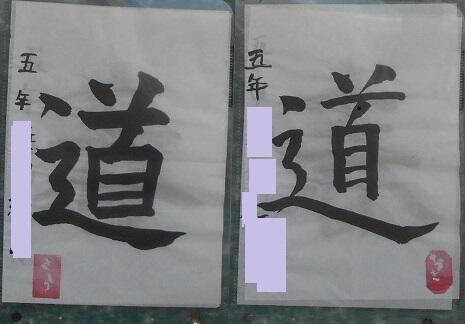 道
五年
道
五年